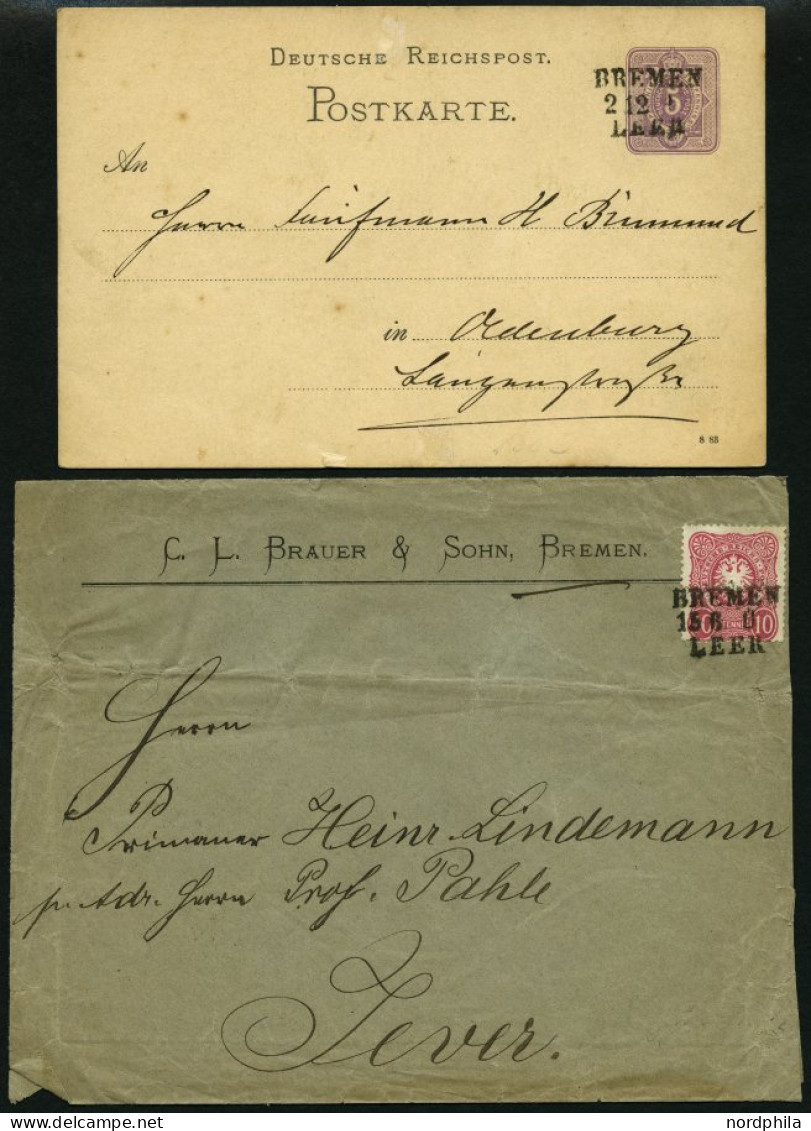 DEUTSCHE REICHSPOST.
POSTKARTE.
5
BREMEN
2 12
LEER
An
Herrn Kaufmann H
in Oldenburg
8 83
C. L. BRAUER & SOHN, BREMEN.
10
BREMEN
15 6 II
LEER
Herrn
Primaner Heinr. Lindemann
p. Adr. Herrn Prof. Pahle
Jever.
www.nordphila.de